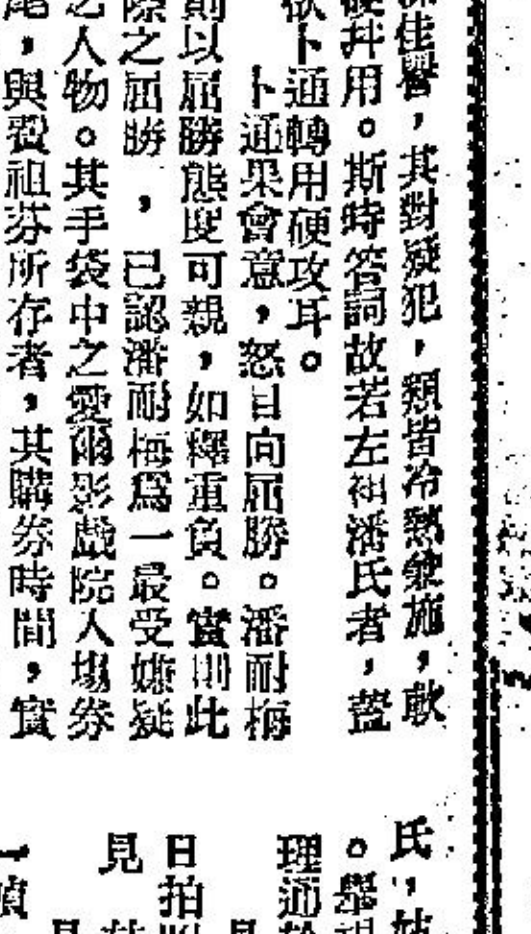 佳譽，其對疑犯，類皆冷熱兼施，軟
硬幷用。斯時答詞故若左袒潘氏者，蓋
欲卜通轉用硬攻耳。
卜通果會意，怒目向屈勝。潘耐梅
則以屈勝態度可親，如釋重負。實則此
際之屈勝，已認潘耐梅爲一最受嫌疑
之人物。其手袋中之愛爾影戲院入場券
尾，與費祖芬所存者，其購券時間，實
氏，姑
。舉
理通
日拍
見
一